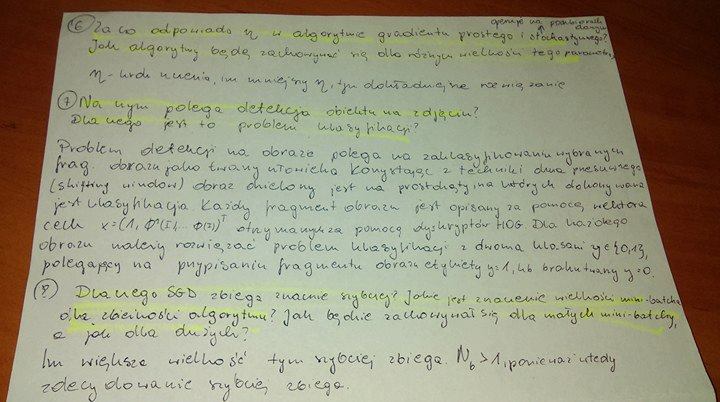 operuje na podzbiorach
danych
6 Za co odpowiada η w algorytmie gradientu prostego i stochastycznego?
Jak algorytmy będą zachowywać się dla różnych wielkości tego parametru?
η - krok uczenia, im mniejszy η, tym dokładniejsze rozwiązanie
7 Na czym polega detekcja obiektu na zdjęciu?
Dlaczego jest to problem klasyfikacji?
Problem detekcji na obrazie polega na zaklasyfikowaniu wybranych
frag. obrazu jako twarzy człowieka korzystając z techniki okna przesuwnego
(shifting window) obraz dzielony jest na prostokąty na których dokonywana
jest klasyfikacja. Każdy fragment obrazu jest opisany za pomocą wektora
cech x=(1, φ¹(I)... φ(I))ᵀ otrzymanych za pomocą dyskryptorów HOG. Dla każdego
obrazu należy rozwiązać problem klasyfikacji z dwoma klasami y∈{0,1},
polegający na przypisaniu fragmentu obrazu etykiety y=1, lub braku twarzy y=0.
8 Dlaczego SGD zbiega znacznie szybciej? Jakie jest znaczenie wielkości mini-batcha
dla zbieżności algorytmu? Jak będzie zachowywał się dla małych mini-batchy,
a jak dla dużych?
Im większa wielkość tym szybciej zbiega. N_b >1, ponieważ wtedy
zdecydowanie szybciej zbiega.